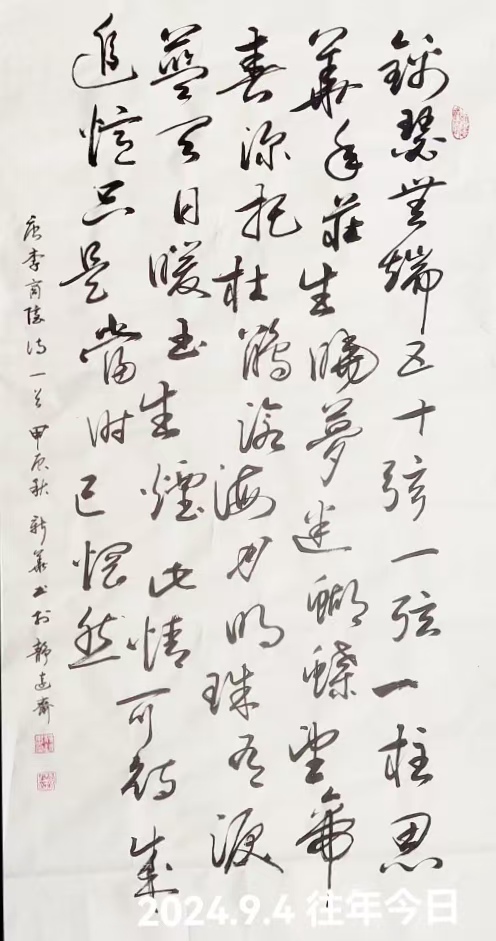 錦瑟無端五十弦一弦一柱思
華年莊生曉夢迷蝴蝶望帝
春深托杜鵑滄海月明珠有淚
藍天日暖玉生煙此情可待成
追憶只是當時已惘然
唐李商隱詩一首甲辰秋新華書於靜遠齋
2024.9.4 往年今日